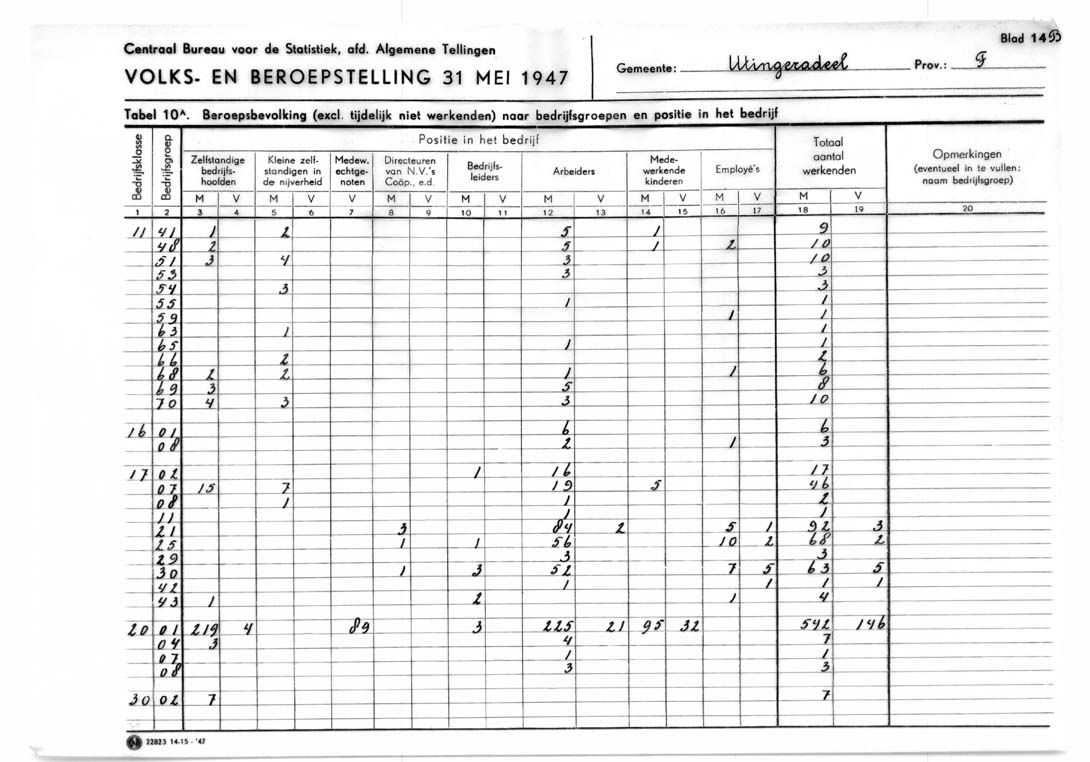 Blad 1493
Centraal Bureau voor de Statistiek, afd. Algemene Tellingen
VOLKS- EN BEROEPSTELLING 31 MEI 1947
Gemeente: Utingeradeel Prov.: F
Tabel 10A. Beroepsbevolking (excl. tijdelijk niet werkenden) naar bedrijfsgroepen en positie in het bedrijf
Bedrijfsklasse Bedrijfsgroep Positie in het bedrijf Totaal aantal werkenden Opmerkingen (eventueel in te vullen: naam bedrijfsgroep)
Zelfstandige bedrijfs-hoofden Kleine zelf-standigen in de nijverheid Medew. echtge-noten Directeuren van N.V.'s Coöp., e.d. Bedrijfs-leiders Arbeiders Mede-werkende kinderen Employé's
M V M V V M V M V M V M V M V M V
1 2 3 4 5 6 7 8 9 10 11 12 13 14 15 16 17 18 19 20
11 41 1 2 5 1 9
48 2 5 1 2 10
51 3 4 3 10
53 3 3
54 3 3
55 1 1
59 1 1
63 1 1
65 1 1
66 2 2
68 2 2 1 1 6
69 3 5 8
70 4 3 3 10
16 01 6 6
08 2 1 3
17 02 1 16 17
07 15 7 19 5 46
08 1 1 2
11 1 1
21 3 84 2 5 1 92 3
25 1 1 56 10 2 68 2
29 3 3
30 1 3 52 7 5 63 5
42 1 1 1 1
43 1 2 1 4
20 01 219 4 89 3 225 21 95 32 542 146
04 3 4 7
07 1 1
08 3 3
30 02 7 7
22823 14-15 - '47